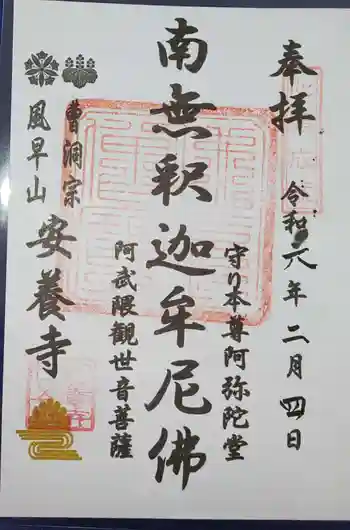 奉拝
令和六年二月四日
守り本尊阿弥陀堂
南無釈迦牟尼佛
阿武隈観世音菩薩
曹洞宗
風早山 安養寺